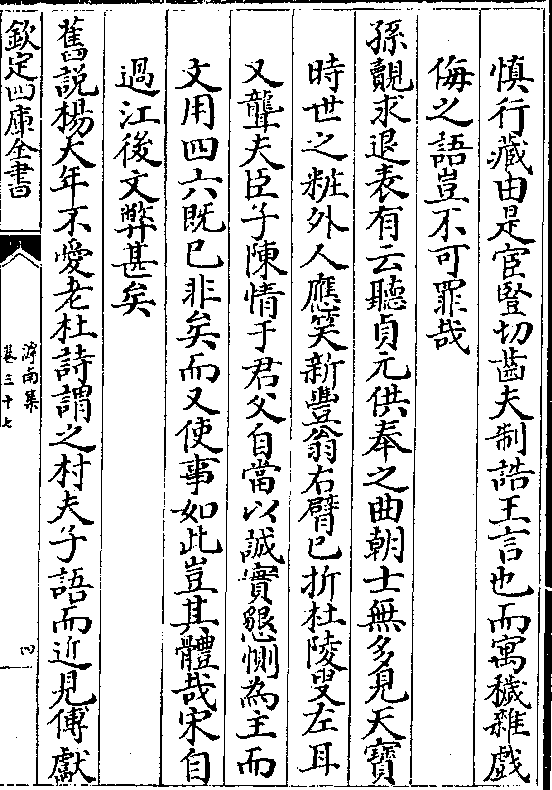 慎行藏由是宦豎切齒夫制誥王言也而寓穢雜戲
侮之語豈不可罪哉
孫覿求退表有云聽貞元供奉之曲朝士無多見天寶
時世之粧外人應笑新豐翁右臂已折杜陵叟左耳
又聾夫臣子陳情于君父自當以誠實懇惻為主而
文用四六既已非矣而又使事如此豈其體哉宋自
過江後文弊甚矣
舊說楊大年不愛老杜詩謂之村夫子語而近見傅獻
欽定四庫全書
滹南集
卷三十七
四